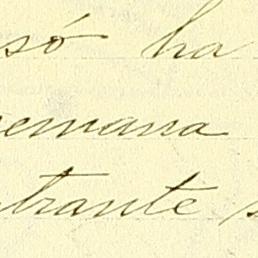 só ha
semana
trante s